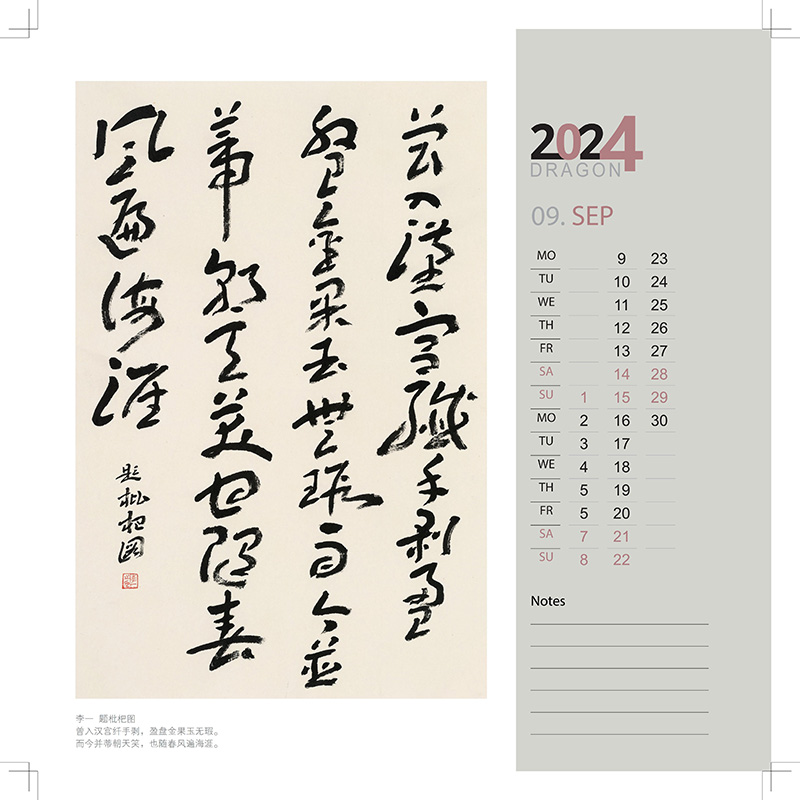 曾入漢宮纖手剥盈
盤金果玉無瑕而今並
蒂朝天笑也隨春
風遍海涯
題枇杷圖
李一 题枇杷图
曾入汉宫纤手剥，盈盘金果玉无瑕。
而今并蒂朝天笑，也随春风遍海涯。
2024
DRAGON
09. SEP
MO 9 23
TU 10 24
WE 11 25
TH 12 26
FR 13 27
SA 14 28
SU 1 15 29
MO 2 16 30
TU 3 17
WE 4 18
TH 5 19
FR 5 20
SA 7 21
SU 8 22
Notes